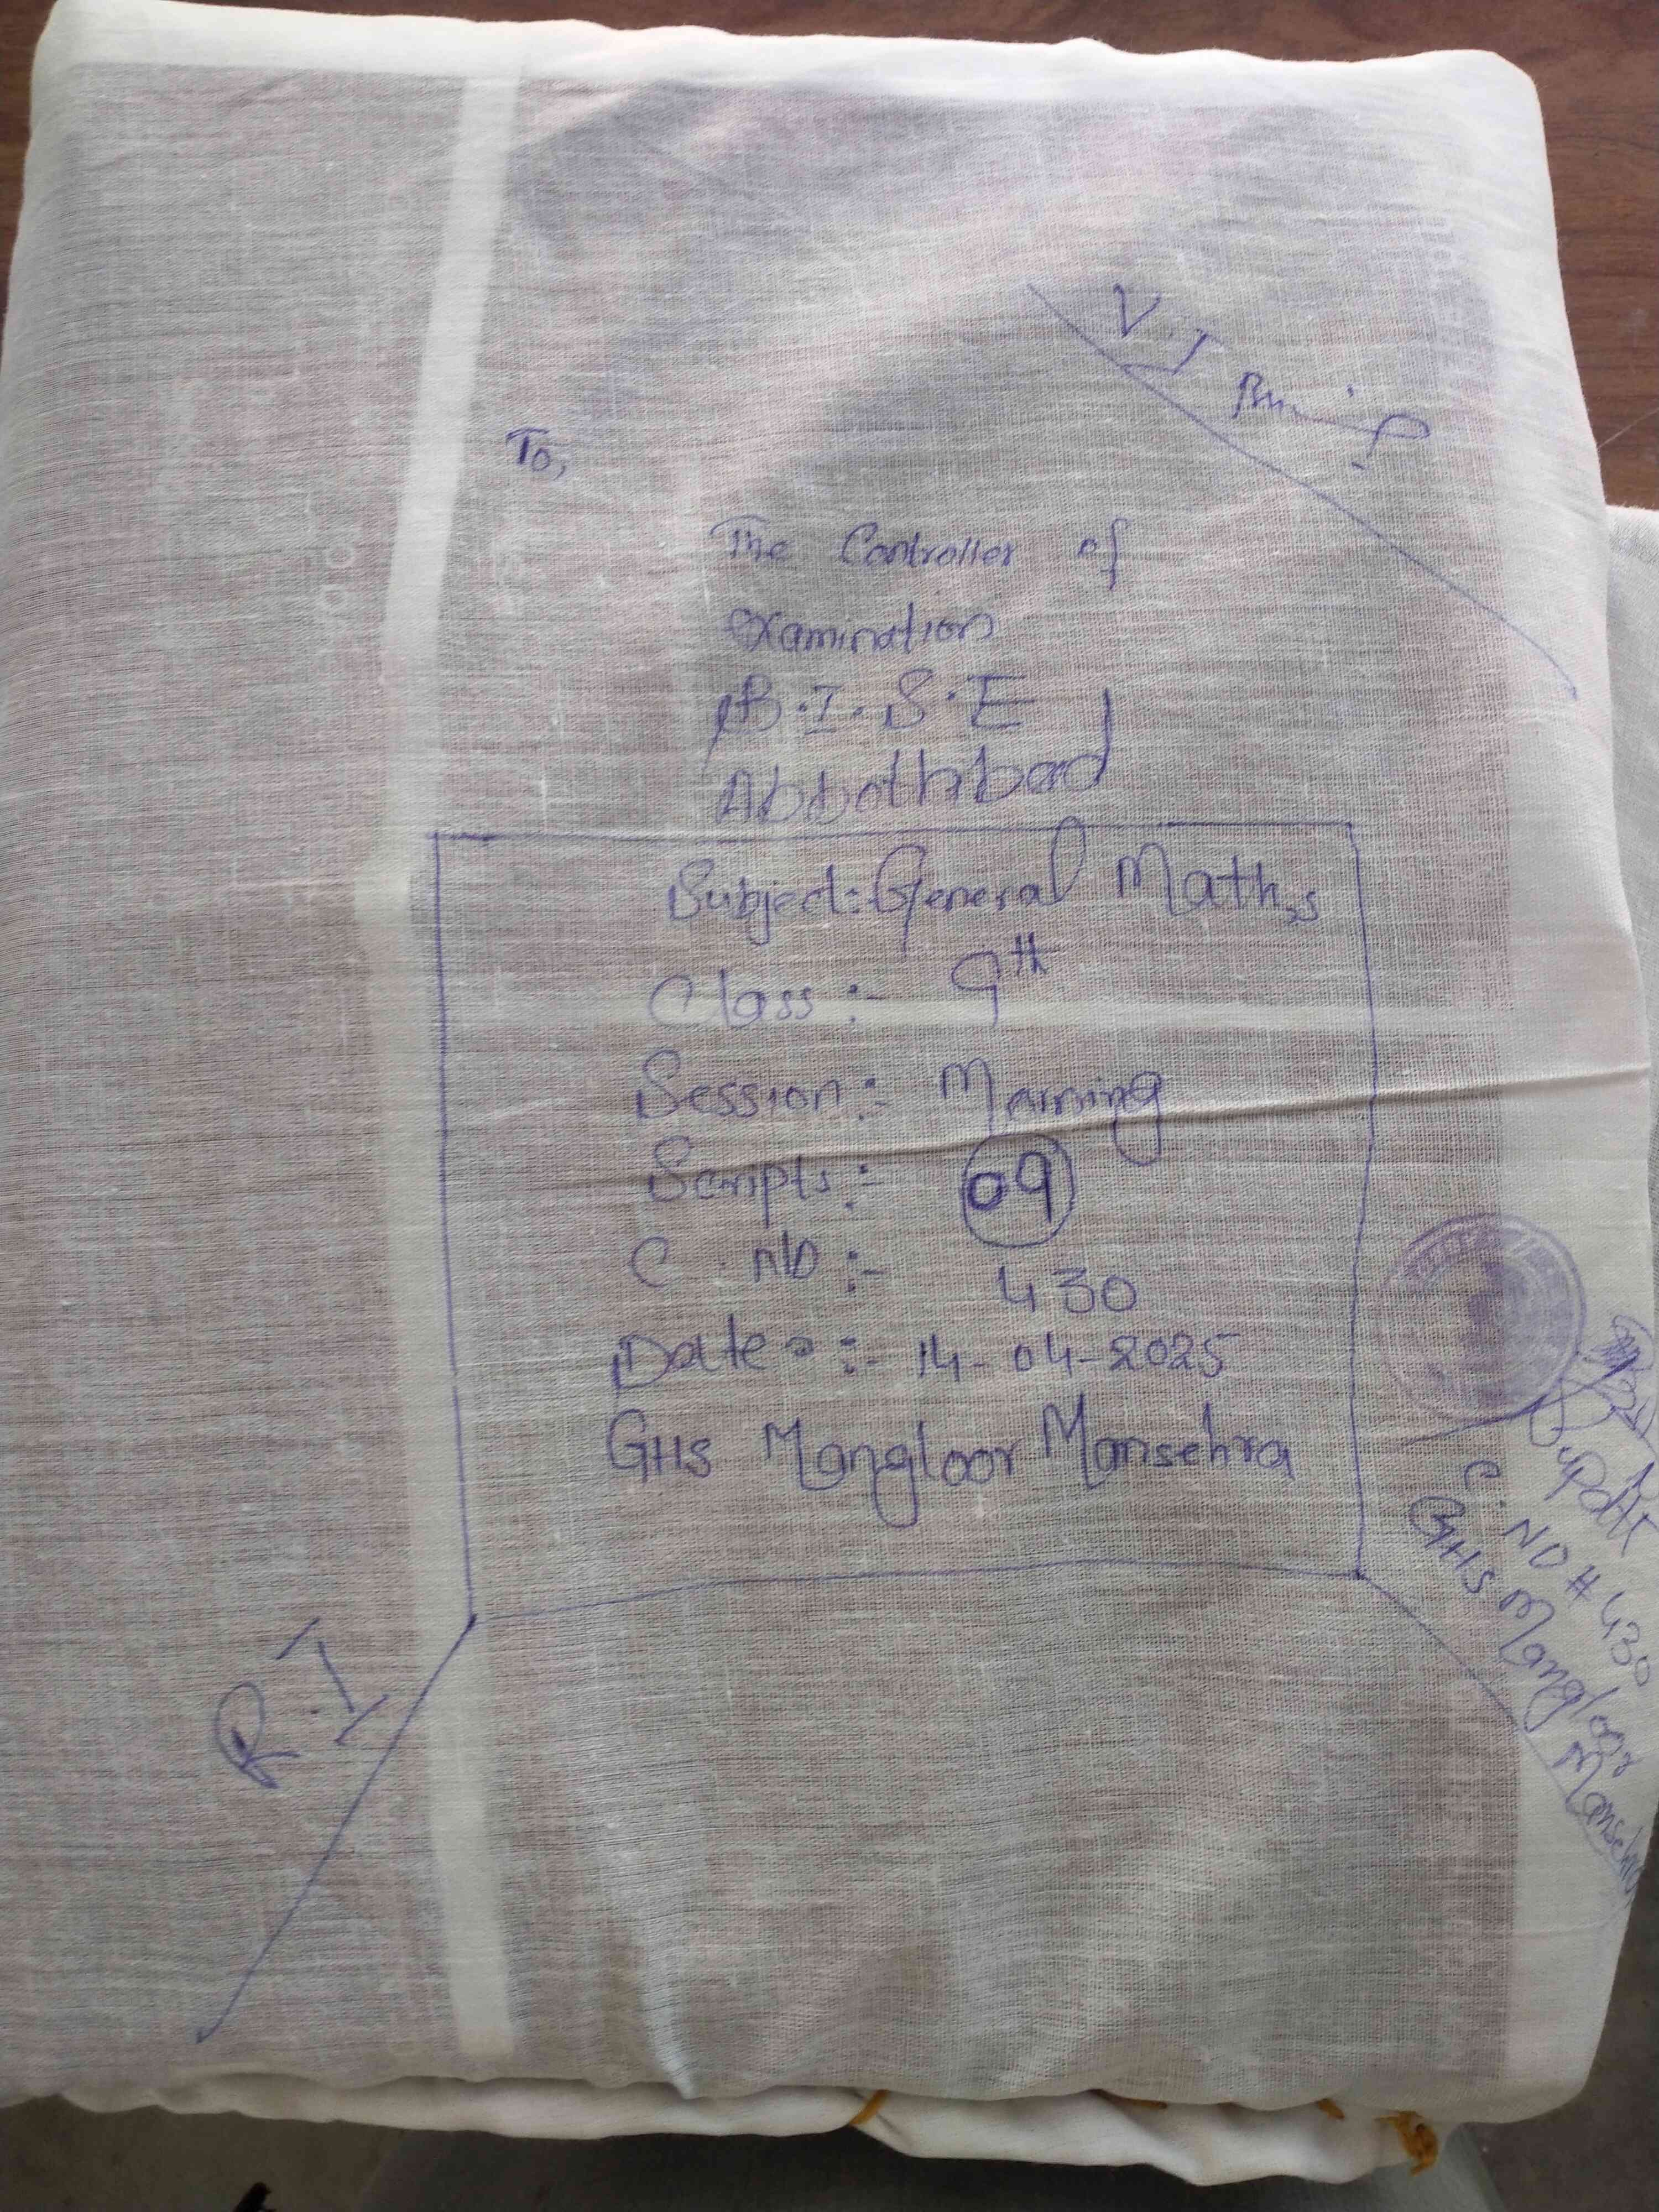 V.I
To,
The Controller of
examination
B.I.S.E
Abbottabad
Subject:- General Maths
Class:- 9th
Session:- Morning
Scripts:- 09
C. no:- 430
Date:- 14-04-2025
GHS Mangloor Mansehra
R.I
Supdtt
C. NO # 430
GHS Mangloor
Mansehra